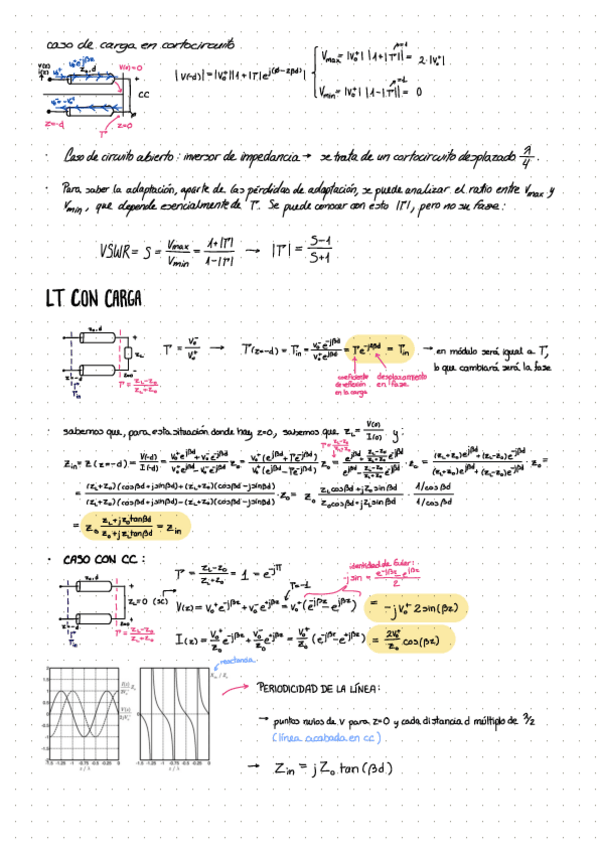 caso de carga en cortocircuito
V(z)
I(z)
V₀⁺e^jβz
z₀, d
V(0)=0
CC
z=-d
z=0
Γ
|V(-d)| = |V₀⁺| |1+|Γ|e^j(ø-2βd)|
Vmax = |V₀⁺| |1+|Γ|| = 2·|V₀⁺|
Vmin = |V₀⁺| |1-|Γ|| = 0
· Caso de circuito abierto: inversor de impedancia → se trata de un cortocircuito desplazado λ/4.
· Para saber la adaptación, aparte de las pérdidas de adaptación, se puede analizar el ratio entre Vmax y
Vmin, que depende esencialmente de Γ. Se puede conocer con esto |Γ|, pero no su fase:
VSWR = S = Vmax/Vmin = 1+|Γ|/1-|Γ| → |Γ| = S-1/S+1
LT CON CARGA
z₀, d
z_L
z=-d
z=0
Γin
Γ = z_L-z₀/z_L+z₀
Γ = V₀⁻/V₀⁺ → Γ(z=-d) = Γin = V₀⁻e^-jβd/V₀⁺e^jβd = Γe^-j2βd = Γin → en módulo será igual a Γ,
lo que cambiará será la fase
coeficiente de reflexión en la carga
desplazamiento en fase
· sabemos que, para esta situación donde hay z=0, sabemos que z_L = V(0)/I(0) y:
Γ = z_L-z₀/z_L+z₀
zin = z(z=-d) = V(-d)/I(-d) = V₀⁺e^jβd + V₀⁻e^-jβd/V₀⁺e^jβd - V₀⁻e^-jβd z₀ = V₀⁺(e^jβd + Γe^-jβd)/V₀⁺(e^jβd - Γe^-jβd) z₀ = e^jβd + z_L-z₀/z_L+z₀ e^-jβd/e^jβd - z_L-z₀/z_L+z₀ e^-jβd · z₀ = (z_L+z₀)e^jβd + (z_L-z₀)e^-jβd/(z_L+z₀)e^jβd - (z_L-z₀)e^-jβd · z₀ =
= (z_L+z₀)(cosβd+jsinβd)+(z_L-z₀)(cosβd-jsinβd)/(z_L+z₀)(cosβd+jsinβd)-(z_L-z₀)(cosβd-jsinβd) · z₀ = z₀ z_L cosβd + jz₀ sinβd/z₀ cosβd + jz_L sinβd · 1/cosβd/1/cosβd
= z₀ z_L+jz₀tanβd/z₀+jz_Ltanβd = zin
· CASO CON CC:
z₀, d
z_L=0 (SC)
z=-d
z=0
Γin
Γ = z_L-z₀/z_L+z₀
Γ = z_L-z₀/z_L+z₀ = 1 = e^-jπ
Γ=-1
identidad de Euler:
-jsin = e^-jβz - e^jβz/2
V(z) = V₀⁺e^-jβz + V₀⁻e^+jβz = V₀⁺(e^-jβz - e^jβz) = -jV₀⁺2sin(βz)
I(z) = V₀⁺/z₀ e^-jβz - V₀⁻/z₀ e^+jβz = V₀⁺/z₀ (e^-jβz - e^+jβz) = 2V₀⁺/z₀ cos(βz)
reactancia
-1.5 -1.25 -1 -0.75 -0.5 -0.25 0
z / λ
-1.5 -1.25 -1 -0.75 -0.5 -0.25 0
z / λ
PERIODICIDAD DE LA LÍNEA:
→ puntos nulos de v para z=0 y cada distancia d múltiplo de λ/2
(línea acabada en cc).
→ Zin = jZ₀ tan(βd)